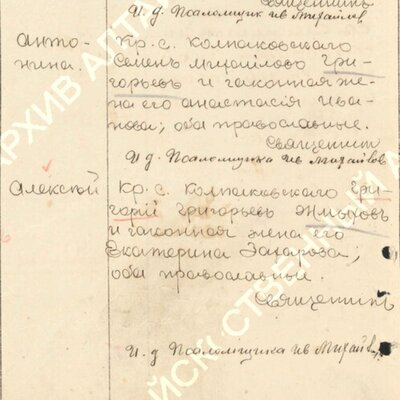 Священникъ
И. д. Псаломщик Ив Михайлов
Анто-
нина.
Кр. с. Колпаковскаго
Семенъ Михайлово Гри-
горьевъ и законная же-
на его Анастасія Ива-
нова; оба православные.
Священник
И д. Псаломщика Ив Михайлов
Алексѣй
Кр. с. Колпаковскаго Гри-
горій Григорьевъ
и законная жена его
Екатерина Захарова;
оба православные.
Священникъ
И. д Псаломщика Ив Михайлов
АРХИВ АЛТ
СТВЕННЫЙ А